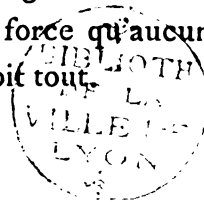 force qu'aucun
oit tout.
BIBLIOTH
DE LA
VILLE DE
LYON